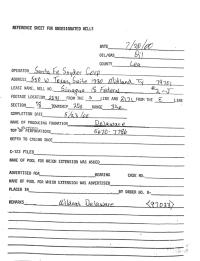 REFERENCE SHEET FOR UNDESIGNATED WELLS
DATE 7/28/00
OIL/GAS Oil
COUNTY Lea
OPERATOR Santa Fe Snyder Corp
ADDRESS 550 W Texas, Suite 1330 Midland, TX 79701
LEASE NAME, WELL NO. 15 Federal
FOOTAGE LOCATION FROM THE S LINE AND FROM THE E LINE
SECTION TOWNSHIP RANGE 32e
COMPLETION DATE 5/23/00
NAME OF PRODUCING FORMATION Delaware
TOP OF PERFORATIONS
REFER TO CASING SHOE
C-123 FILED
NAME OF POOL FOR WHICH EXTENSION WAS ASKED
ADVERTISED FOR HEARING CASE NO.
NAME OF POOL FOR WHICH EXTENSION WAS ADVERTISED
PLACED IN BY ORDER NO. R-
REMARKS Wildcat Delaware